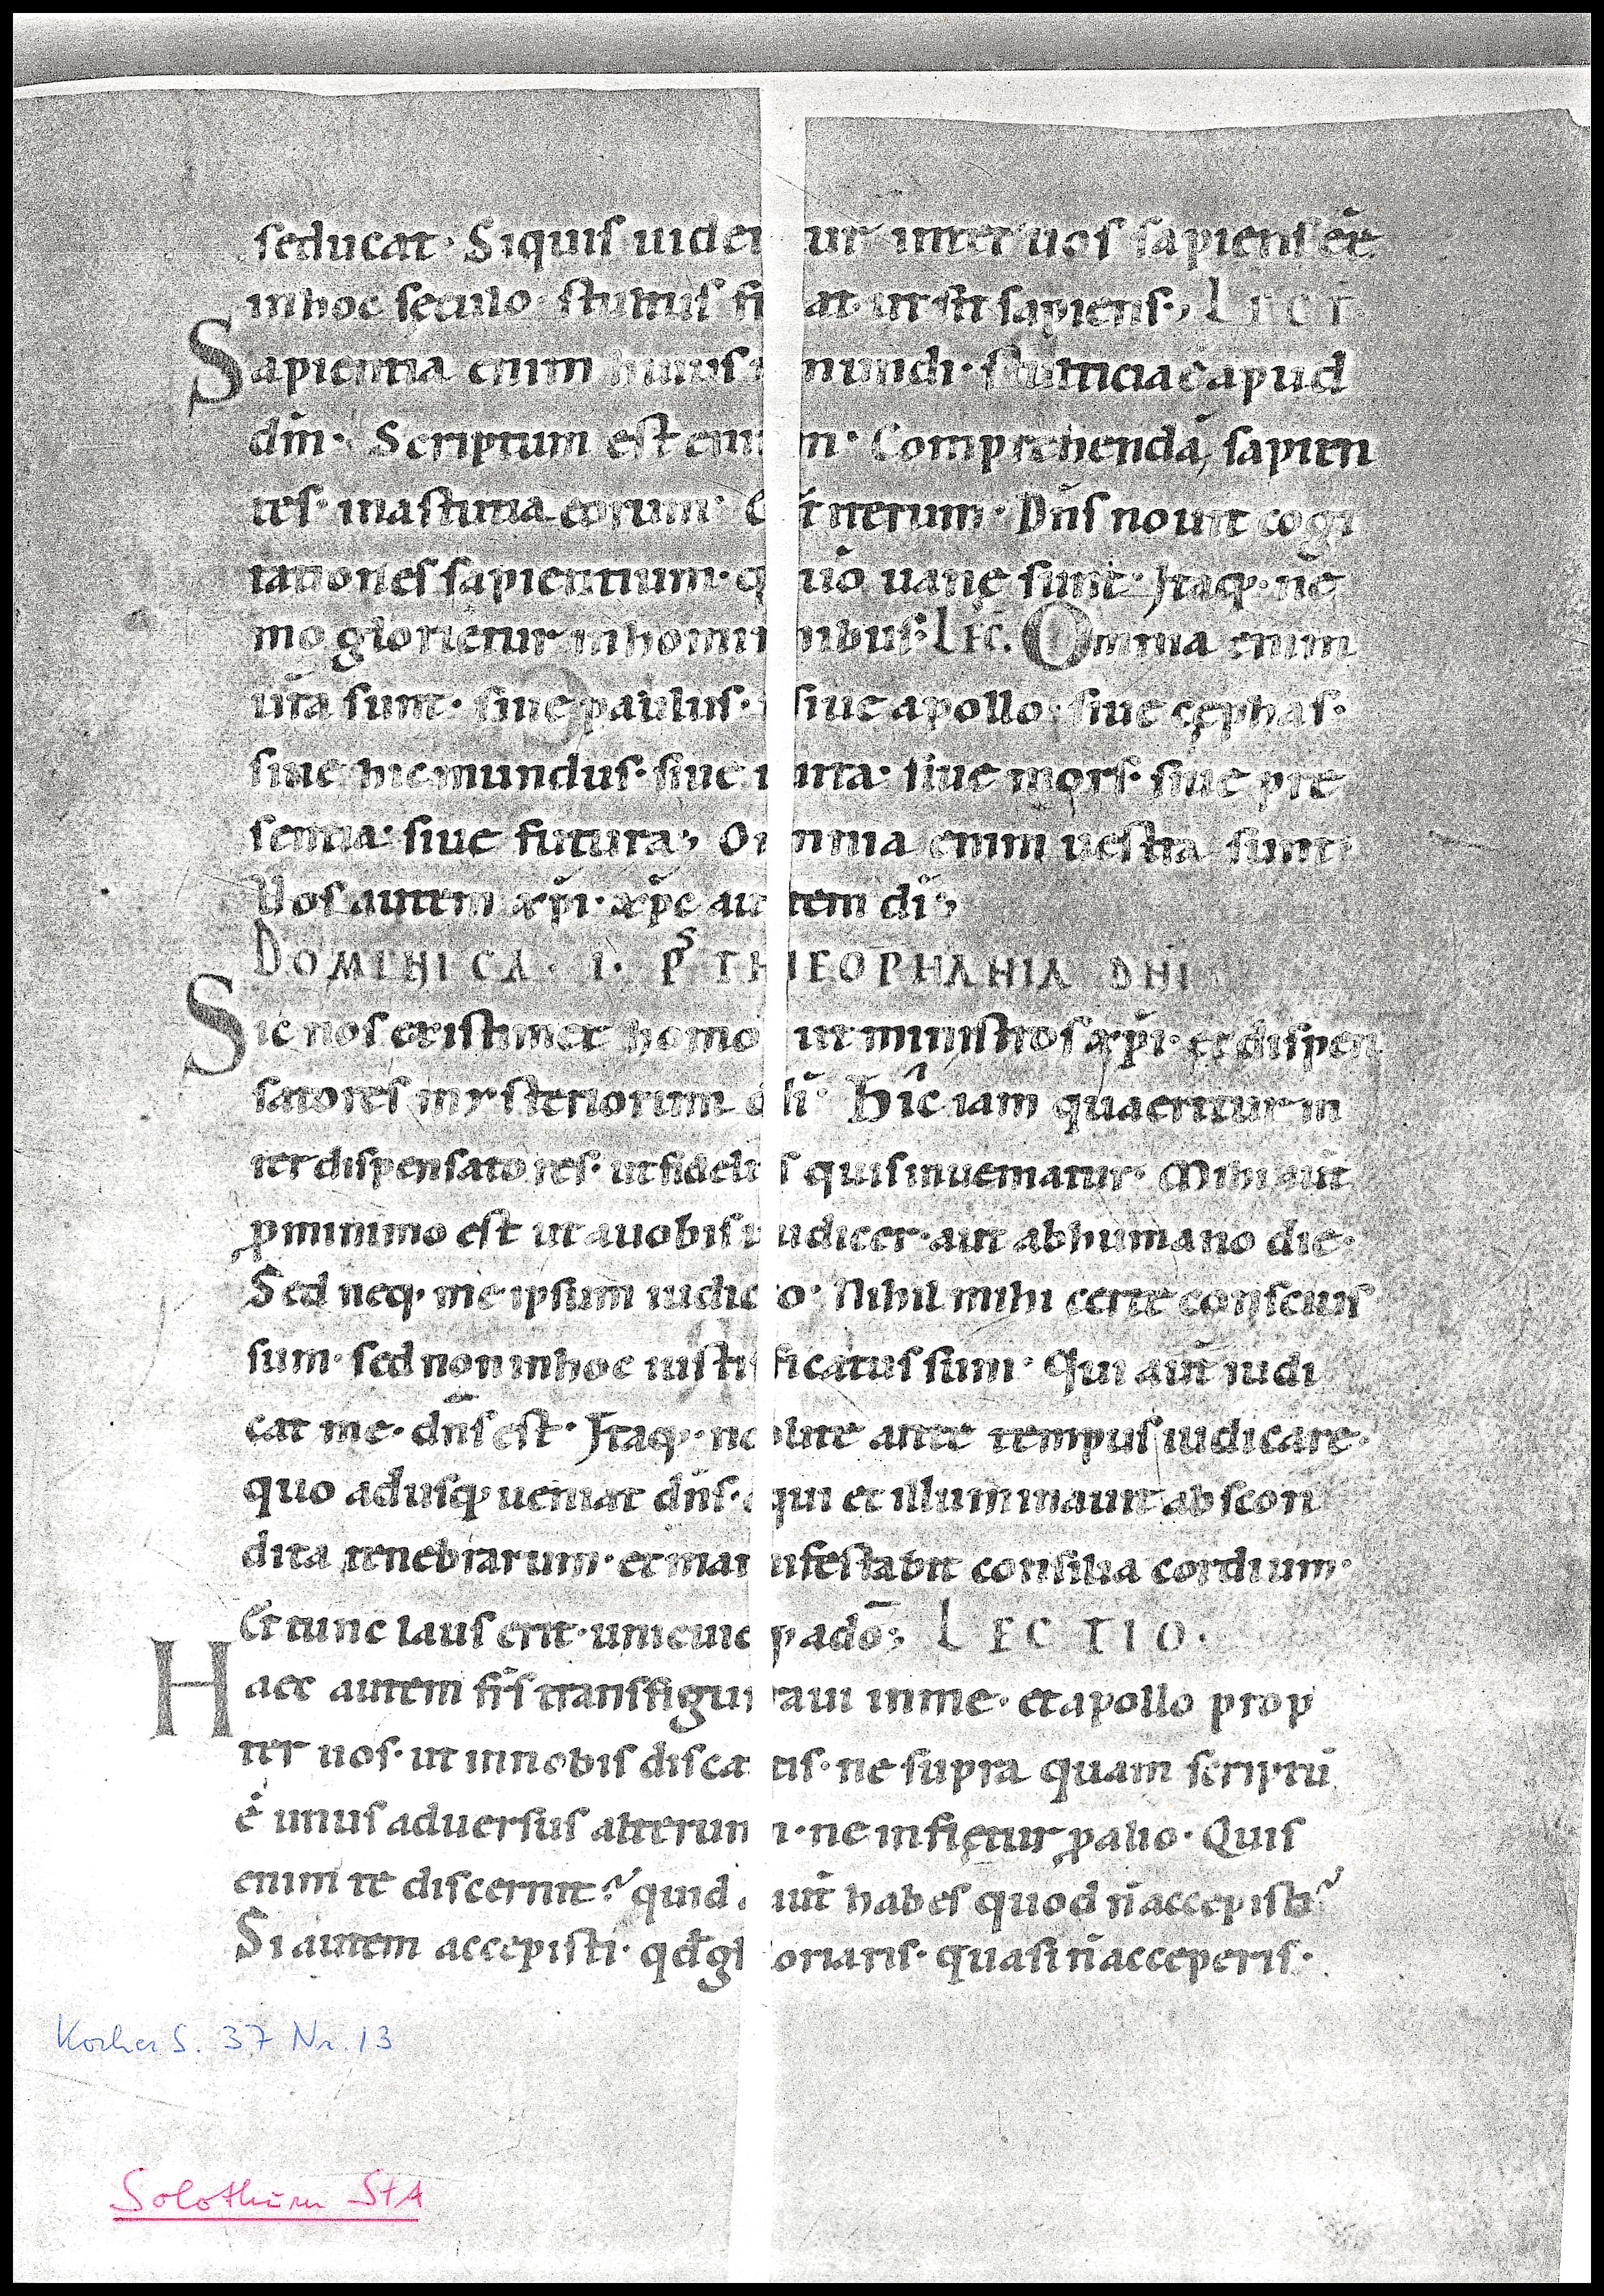 seducat· Siquis uidetur inter uos sapiens eē
inhoc seculo· stultus fiat· ut sit sapiens·, LECT
Sapientia enim huius mundi· stulticia ē apud
dm̄· Scriptum est enim· Comprehendā sapien
tes· inastutia eorum· Et iterum· Dn̄s nouit cogi
tationes sapientium· quō uanę sunt· Itaq· ne
mo glorietur inhominibus·, LEC. Omnia enim
ur̄a sunt· siue paulus· siue apollo· siue cęphas·
siue hicmundus· siue uita· siue mors· siue pre
sentia· siue futura·, Omnia enim uestra sunt·
Uos autem xp̄i· xp̄c autem dī·,
DOMINICA· I· P̄S THEOPHANIA DNI
Sic nos existimet homo ut ministros xp̄i· et dispen
satores mysteriorum dī· Hic iam quaeritur in
ter dispensatores· ut fidelis quis inueniatur· Mihi aūt
ꝓminimo est ut auobis iudicer· aut abhumano die·
Sed neq· me ipsum iudico· Nihil mihi certe conscius
sum· sed non inhoc iustificatus sum· Qui aūt iudi
cat me· dn̄s est· Itaq· nolite ante tempus iudicare·
quo adusq ueniat dn̄s· qui et illuminauit abscon
dita tenebrarum· et manifestabit consilia cordium·
Et tunc laus erit· unicuiq adō·, LECTIO·
Haec autem fr̄s transfiguraui inme· et apollo prop
ter uos· ut innobis discatis· ne supra quam scriptū
ē unus aduersus alterum· ne infletur ꝓ alio· Quis
enim te discernit? quid aūt habes quod n̄ accepisti?
Si autem accepisti· qd̄ gloriaris· quasi n̄ acceperis·
Kocher S. 37 Nr. 13
Solothurn StA